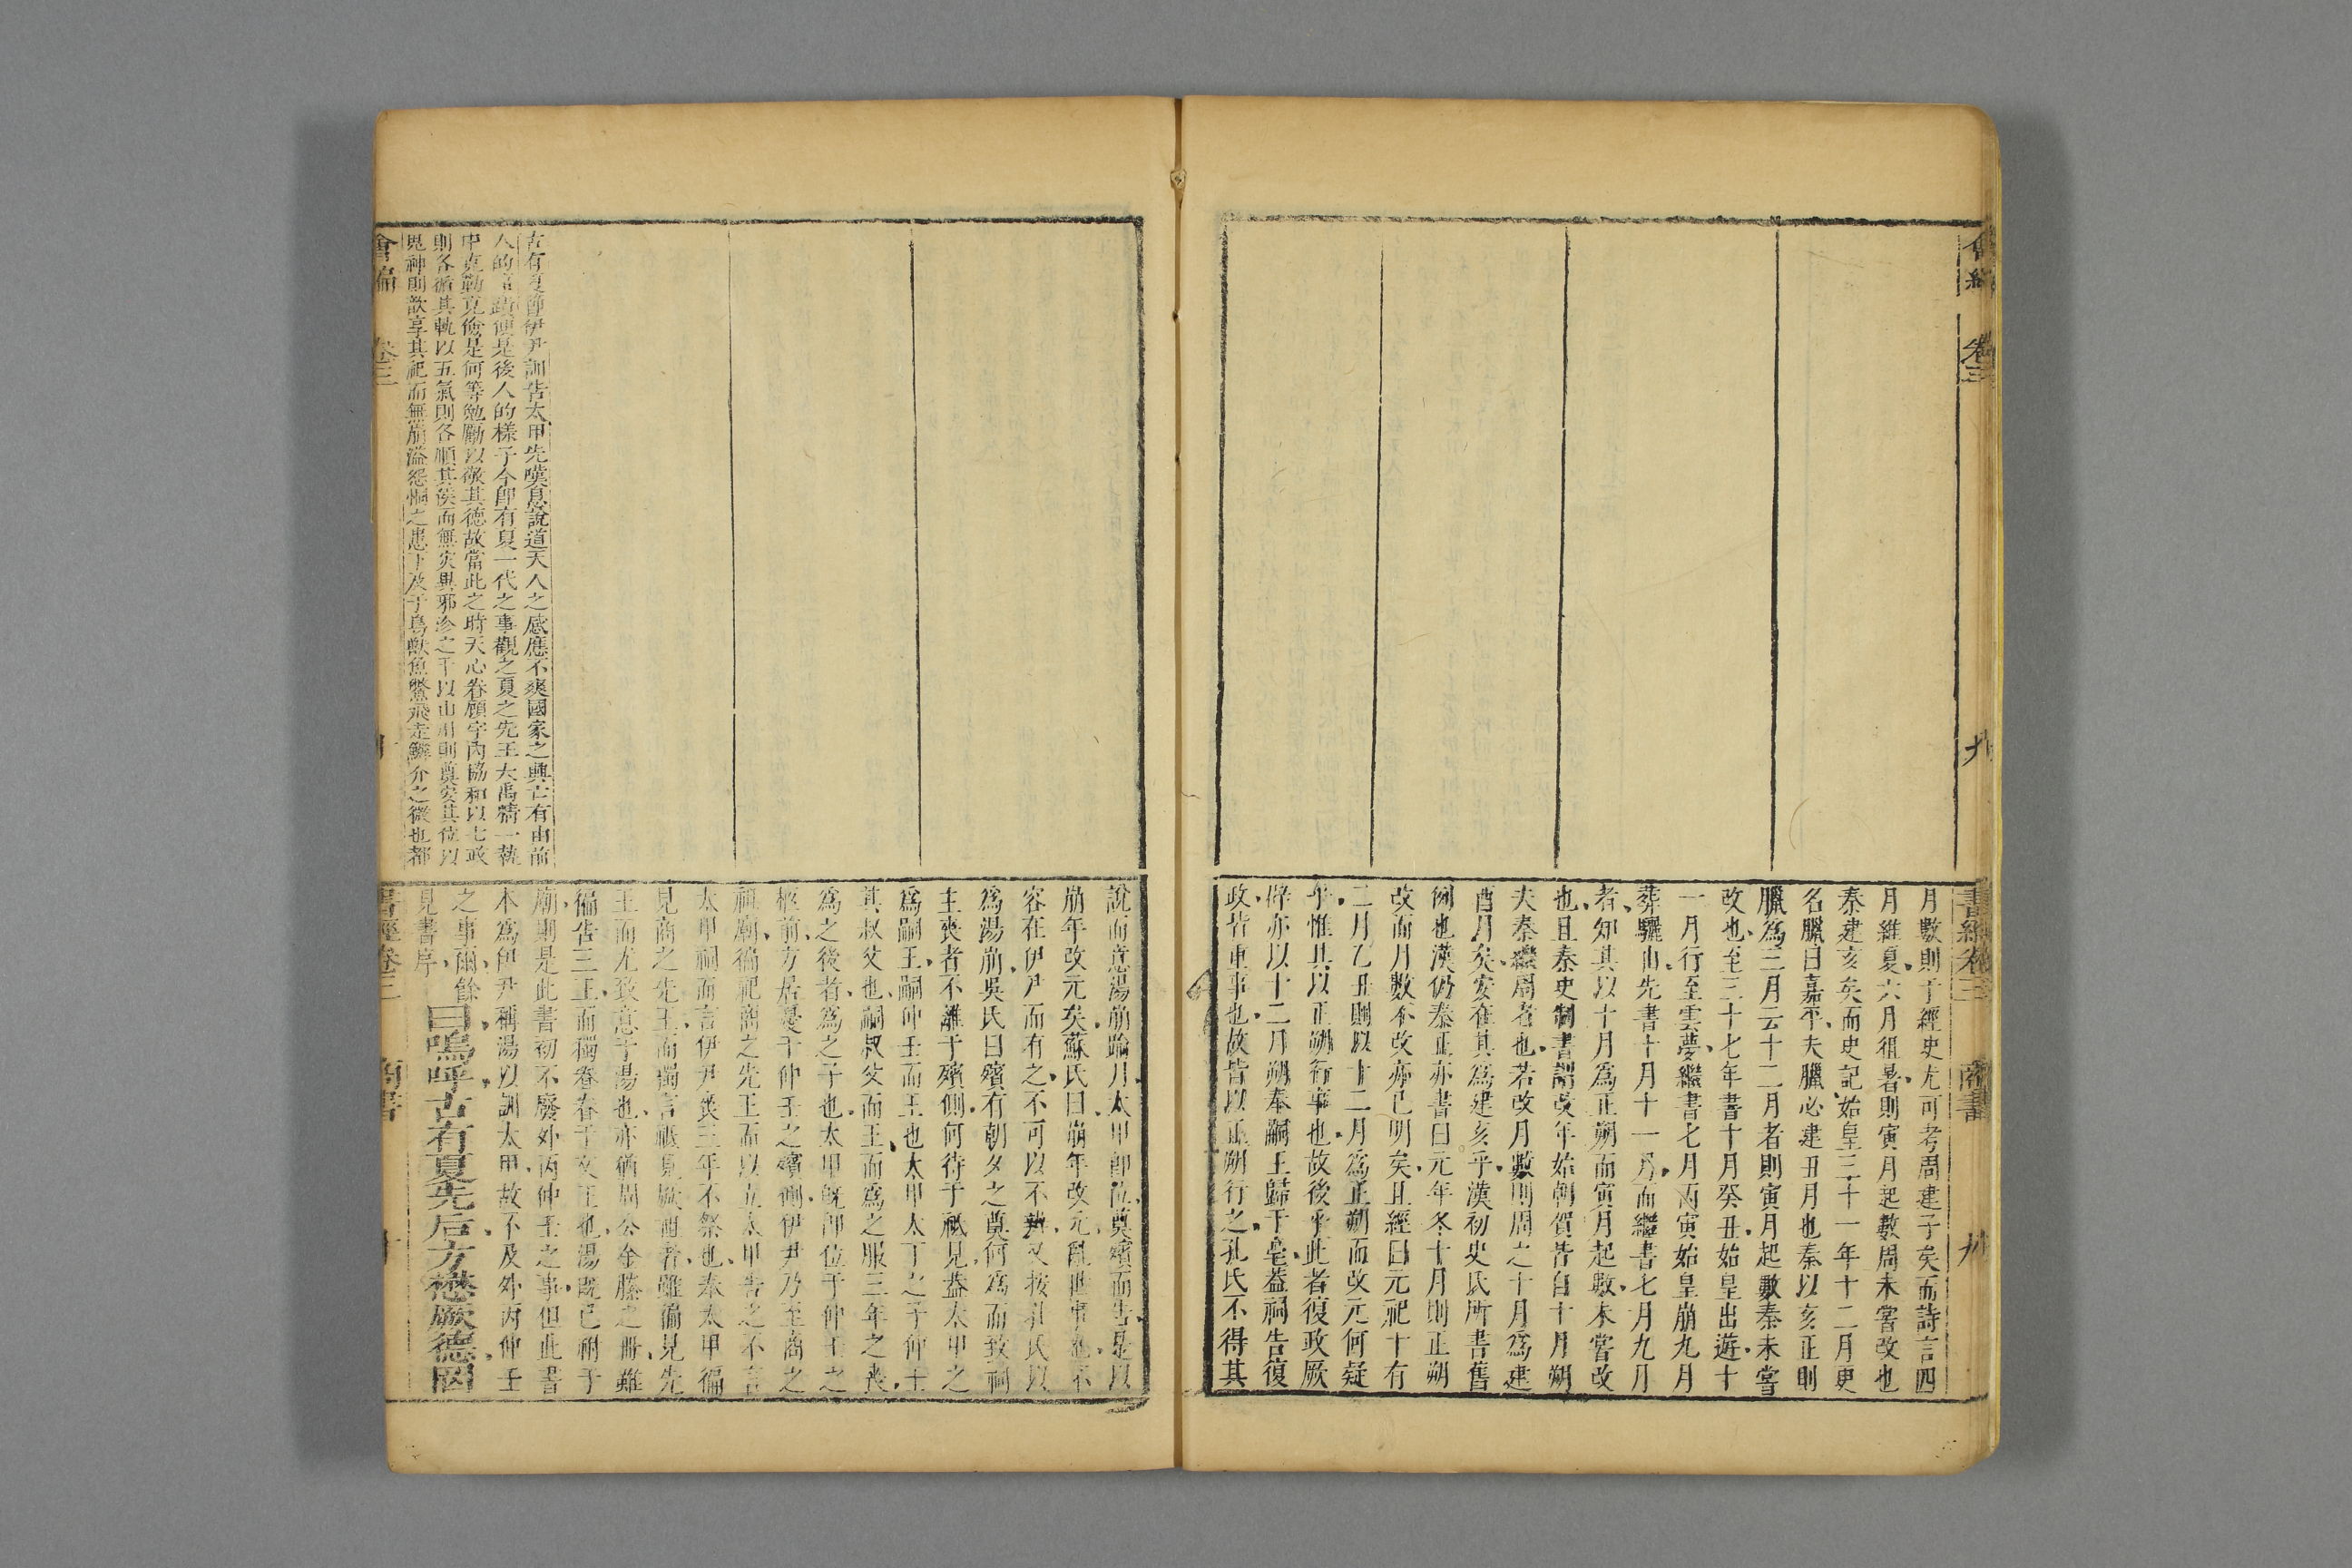 月數則于經史尤可考周建子矣而詩言四
月維夏六月徂暑則寅月起數周未嘗改也
秦建亥矣而史記始皇三十一年十二月更
名臘曰嘉平夫臘必建丑月也秦以亥正則
臘為三月云十二月者則寅月起數秦未嘗
改也至三十七年書十月癸丑始皇出遊十
一月行至雲夢繼書七月丙寅始皇崩九月
葬驪山先書十月十一月而繼書七月九月
者知其以十月為正朔而寅月起數未嘗改
也且秦史制書謂改年始朝賀皆自十月朔
夫秦繼周者也若改月數則周之十月為建
酉月矣安在其為建亥乎漢初史氏所書舊
例也漢仍秦正亦書曰元年冬十月則正朔
改而月數不改亦已明矣且經曰元祀十有
二月乙丑則以十二月為正朔而改元何疑
乎惟其以正朔行事也故後乎此者復政厥
辟亦以十二月朔奉嗣王歸于亳蓋祠告復
政皆重事也故皆以正朔行之孔氏不得其
說而意湯崩踰月太甲即位奠殯而告是以
崩年改元矣蘇氏曰崩年改元亂世事也不
容在伊尹而有之不可以不辨又按孔氏以
為湯崩吳氏曰殯有朝夕之奠何為而致祠
主喪者不離于殯側何待于祗見蓋太甲之
為嗣王嗣仲壬而王也太甲太丁之子仲壬
其叔父也嗣叔父而王而為之服三年之喪
為之後者為之子也太甲既即位于仲壬之
柩前方居憂于仲壬之殯側伊尹乃至商之
祖廟徧祀商之先王而以立太甲告之不言
太甲祠而言伊尹喪三年不祭也奉太甲徧
見商之先王而獨言祗見厥祖者雖徧見先
王而尤致意于湯也亦猶周公金縢之冊雖
徧告三王而獨眷眷于文王也湯既已祔于
廟則是此書初不廢外丙仲壬之事但此書
本為伊尹稱湯以訓太甲故不及外丙仲壬
之事爾餘
見書序
曰嗚呼古有夏先后方懋厥德罔
古有夏節伊尹訓告太甲先嘆息說道天人之感應不爽國家之興亡有由前
人的言蹟便是後人的樣子今卽有夏一代之事觀之夏之先王大禹精一執
中克勤克儉是何等勉勵以敬其德故當此之時天心眷顧宇內協和以七政
則各循其軌以五氣則各順其候而無災異邪沴之干以山川則奠安其位以
鬼神則歆享其祀而無崩溢怨恫之患下及于鳥獸魚鱉飛走鱗介之微也都
會編
卷三
書經卷三
商書